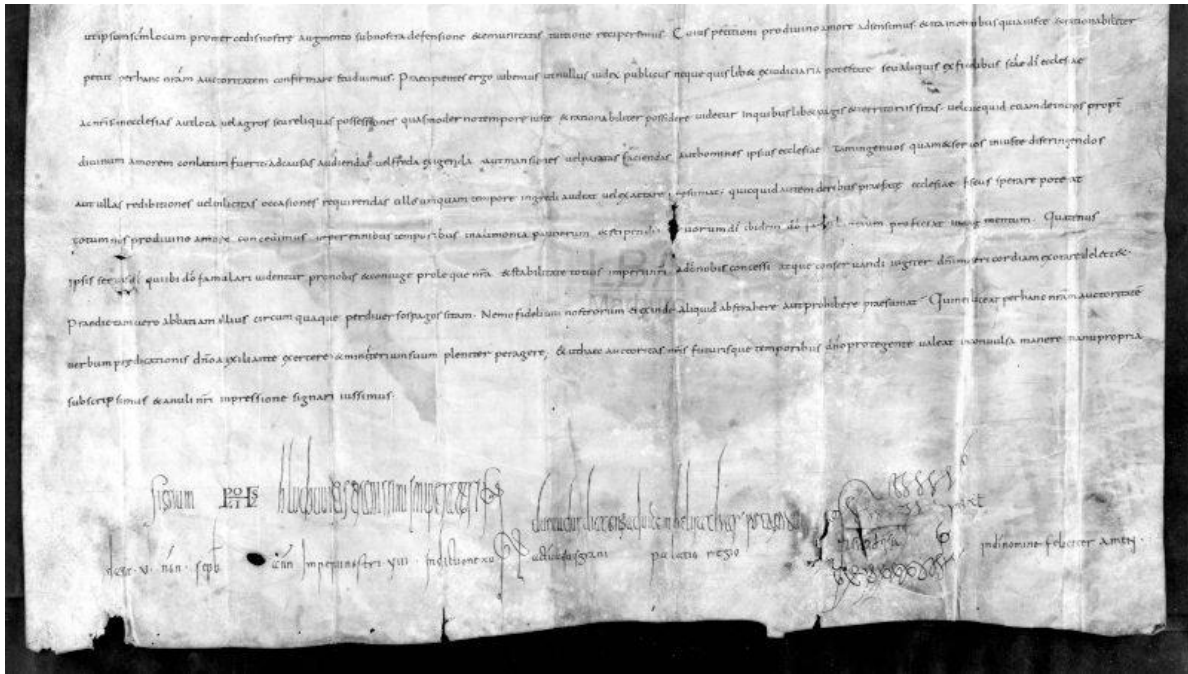 ut ipsum scm locum pro mercedis nostre augmento sub nostra defensione & emunitatis tuitione reciperemus. Cuius petitioni pro divino amore adsensimus & ita in omnibus quia iuste & rationabiliter
petiit per hanc nram auctoritatem confirmare studuimus. Praecipientes ergo iubemus ut nullus iudex publicus neque quislib& ex iudiciaria potestate seu aliquis ex fidelibus scae di ecclesiae
ac nris in ecclesias aut loca vel agros seu reliquas possessiones quas moderno tempore iuste & rationabiliter possidere videtur in quibuslib& pagis & territoriis sitas. vel quicquid etiam deinceps propt
divinum amorem conlatum fuerit, ad causas audiendas vel freda exigenda aut mansiones vel paratas faciendas aut homines ipsius ecclesiae tam ingenuos quam & servos iniuste distringendos
aut ullas redibitiones vel inlicitas occasiones requirendas ullo umquam tempore ingredi audeat vel exactare quicquid autem de rebus praefate ecclesiae fiscus sperare poterat
totum nos pro divino amore concedimus in alimonia pauperum & stipendia di ibidem do augmentum. Quatenus
ipsis qui ibi do famulari videntur pro nobis & coniuge proleque nra & stabilitate totius imperii nri a do nobis concessi atque conservandi iugiter dni misericordiam exorare delect&.
Praedictam vero abbatiam illius circumquaque per diversos pagos sitam. Nemo fidelium nostrorum ei exinde aliquid abstrahere aut prohibere praesumat. Quin ei liceat per hanc nram auctoritate
verbum predicationis dno auxiliante exercere & ministerium suum pleniter peragere, & ut haec auctoritas nris futurisque temporibus dno protegente valeat inconvulsa manere manu propria
subscripsimus & anuli nri inpressione signari iussimus.
Signum hludouuici serenissimi imperatoris
durandus diaconus ad vicem helisachar
dat. v. non. septb anno imperii nostri viii indictione xv actum aquisgrani palatio regio in di nomine feliciter amen.